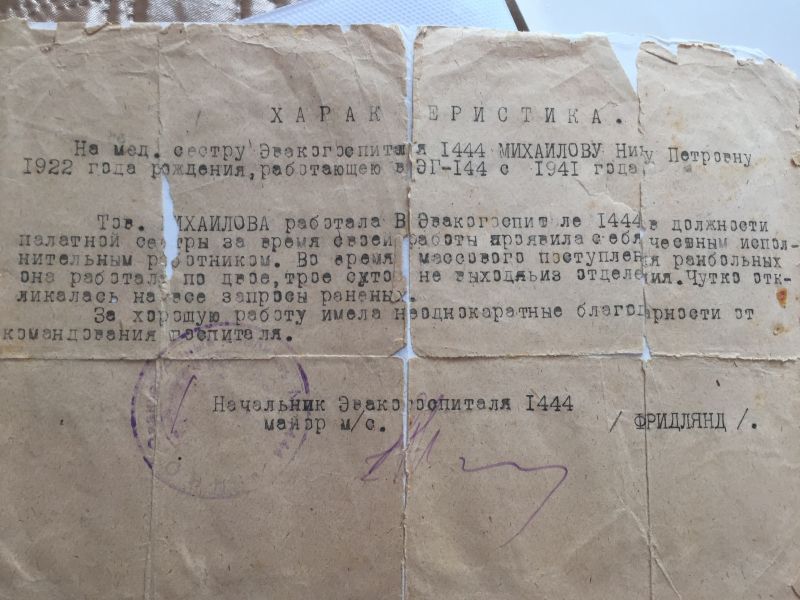 ХАРАК ЕРИСТИКА.
На мед. сестру Эвакогоспиталя 1444 МИХАИЛОВУ Нину Петровну
1922 года рождения,работающею в ЭГ-144 с 1941 года
Тов. МИХАИЛОВА работала В Эвакогоспит ле 1444 в должности
палатной сестры за время своей работы проявила себя честным испол-
нительным работником. Во время массового поступления ранбольных
она работала по двое,трое суток не выходяьиз отделения.Чутко отк-
ликалась на все запросы раненых.
За хорошую работу имела неоднокаратные благодарности от
командования госпиталя.
Начальник Эвакогоспиталя 1444
майор м/с. / ФРИДЛЯНД /.